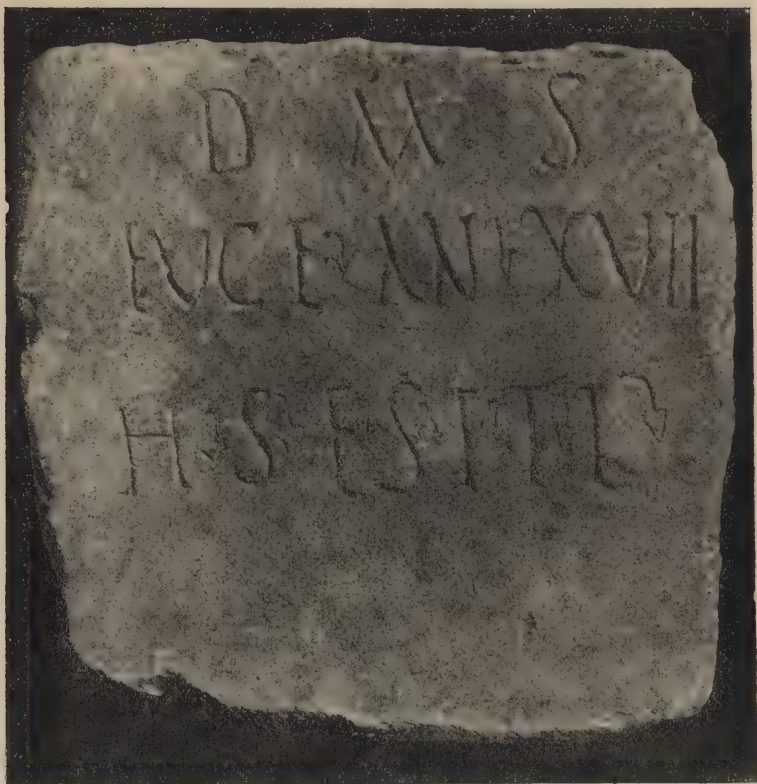 D M S
LVCE AN LXVII
H · S · E S T T L